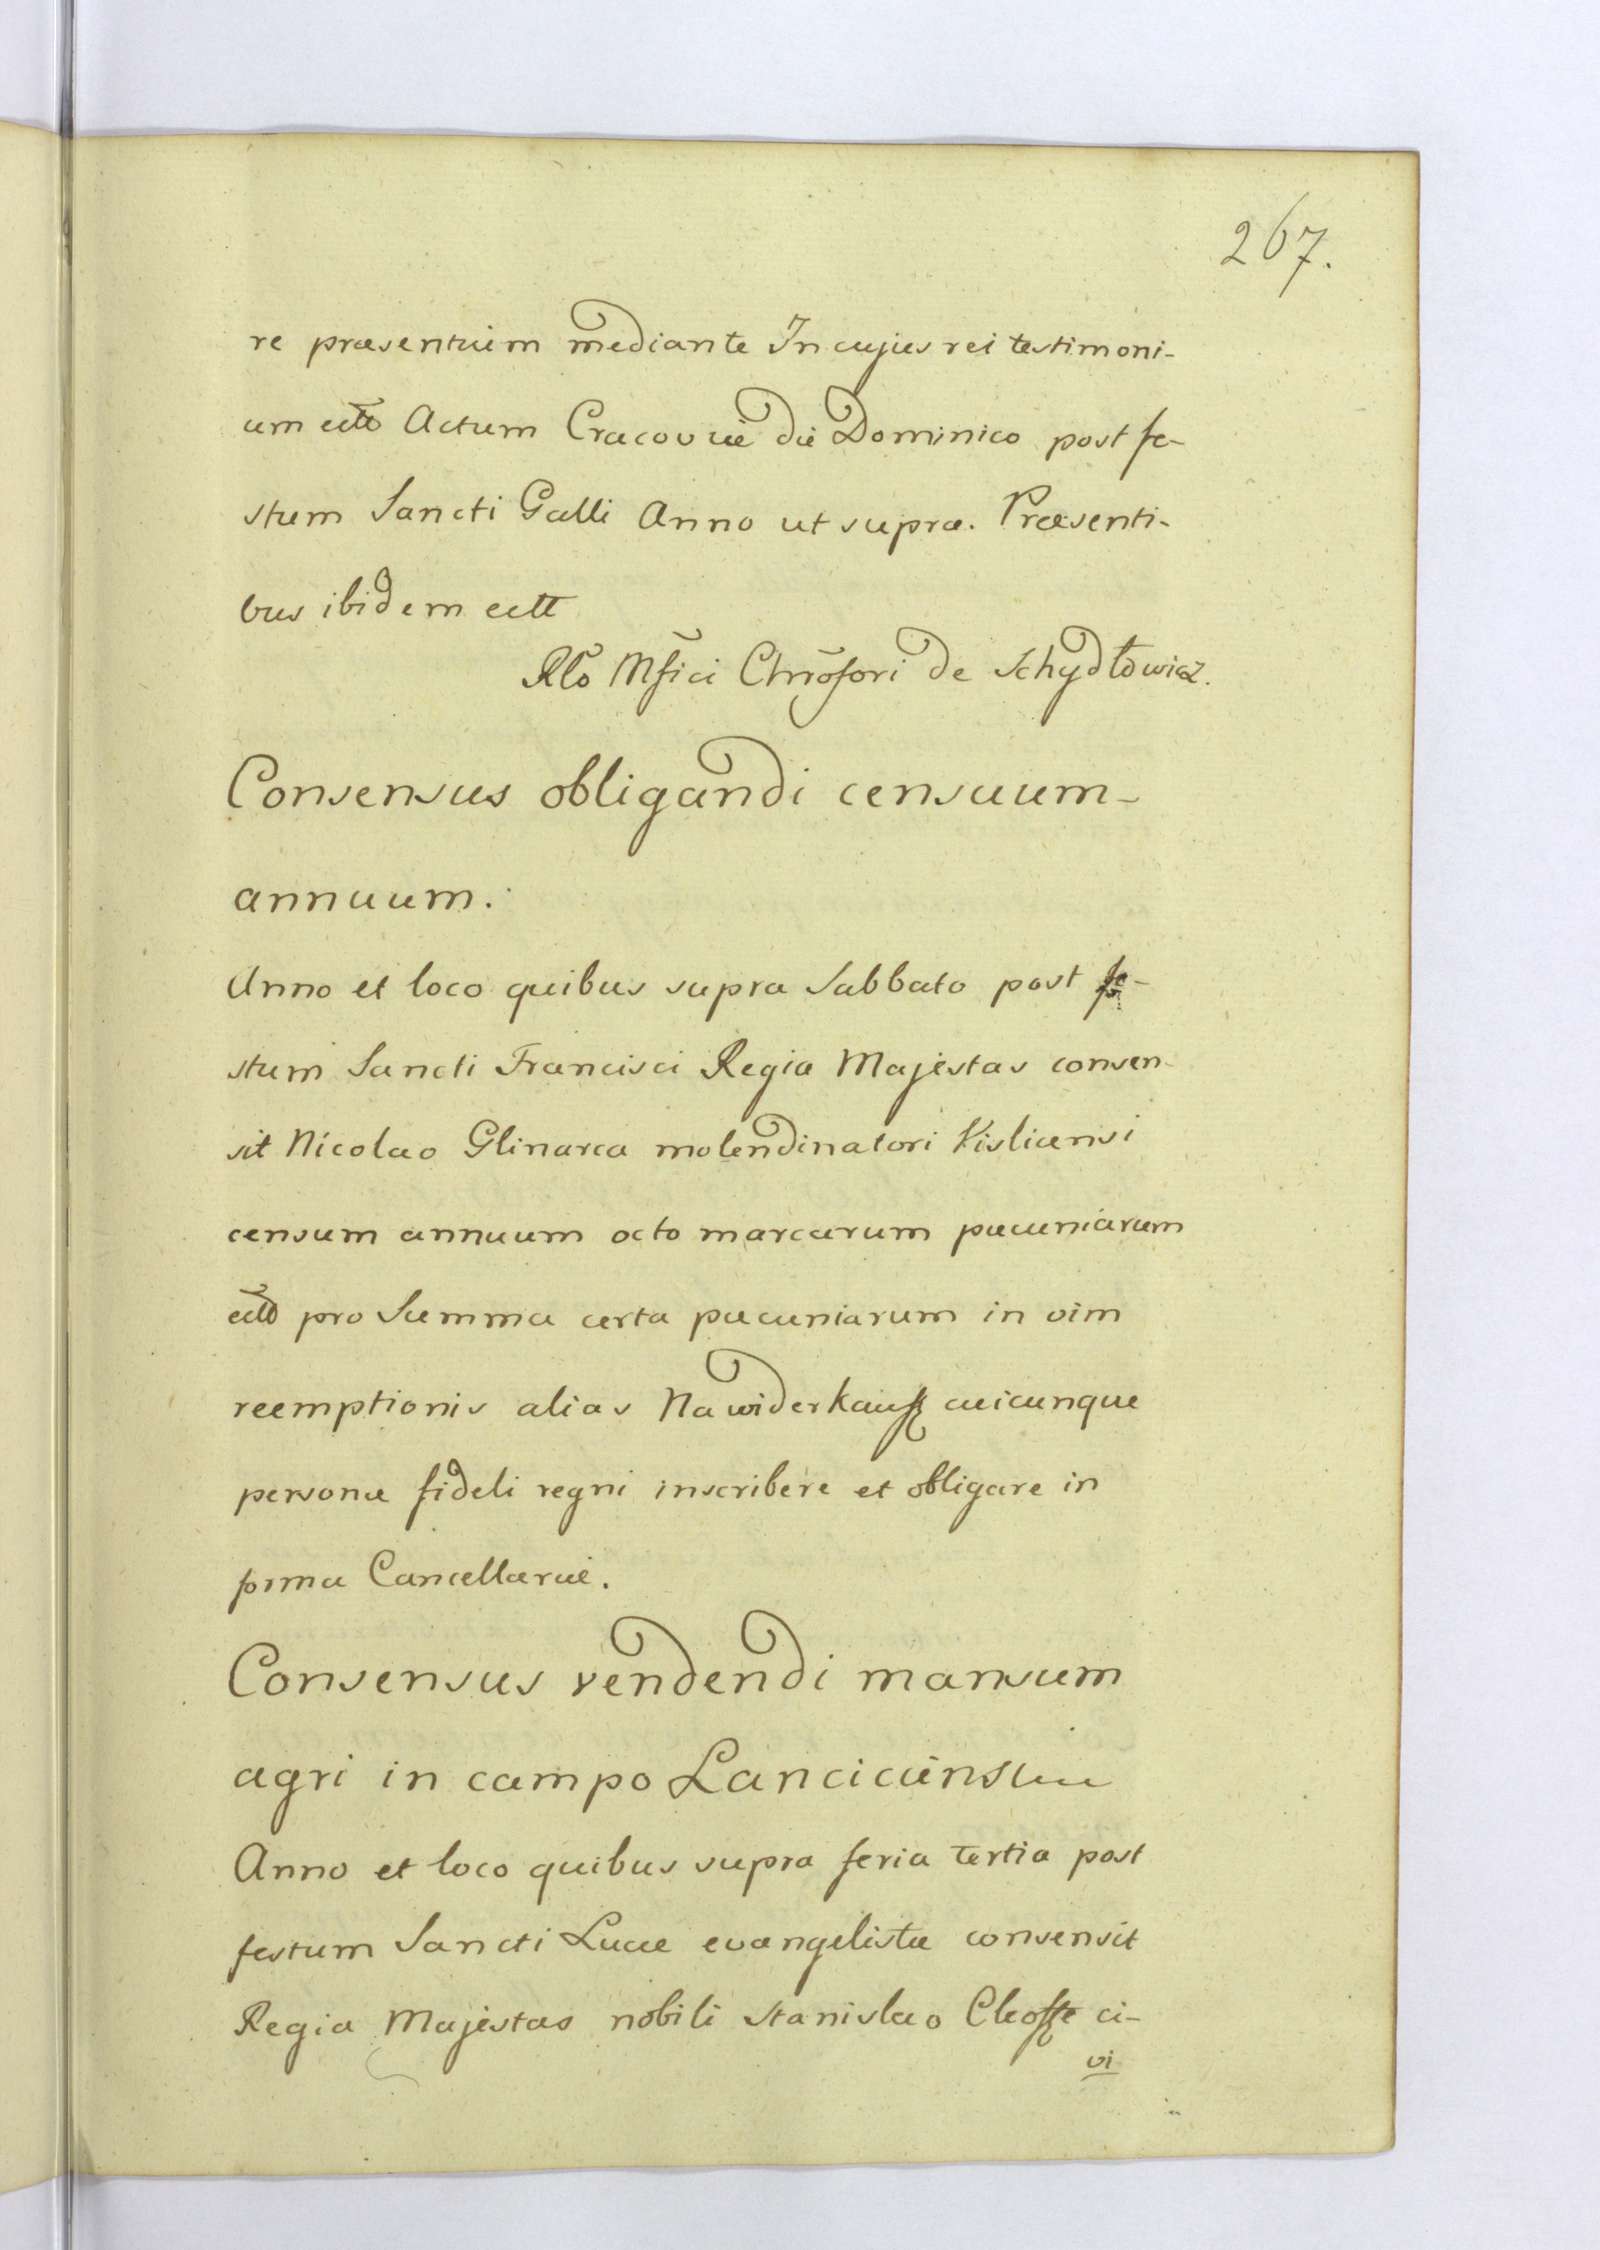 267.
re præsentium mediante In cujus rei testimoni-
um ectt Actum Cracoviæ die Dominico post fe-
stum Sancti Galli Anno ut supra. Præsenti-
bus ibidem ectt
Rlo Mfici Chrõfori de Schydłowicz.
Consensus obligandi censuum-
annuum.
Anno et loco quibus supra Sabbato post fe-
stum Sancti Francisci Regia Majestas consen-
sit Nicolao Glinarca molendinatori Visliciensi
censum annuum octo marcarum pæcuniarum
ectt pro Summa certa pæcuniarum in vim
reemptionis alias Nawiderkauff cuicunque
personæ fideli regni inscribere et obligare in
forma Cancellariæ.
Consensus vendendi mansum
agri in campo Lanciciensium
Anno et loco quibus supra feria tertia post
festum Sancti Lucæ evangelistæ consensit
Regia Majestas nobili Stanislao Cleoffe ci-
vi